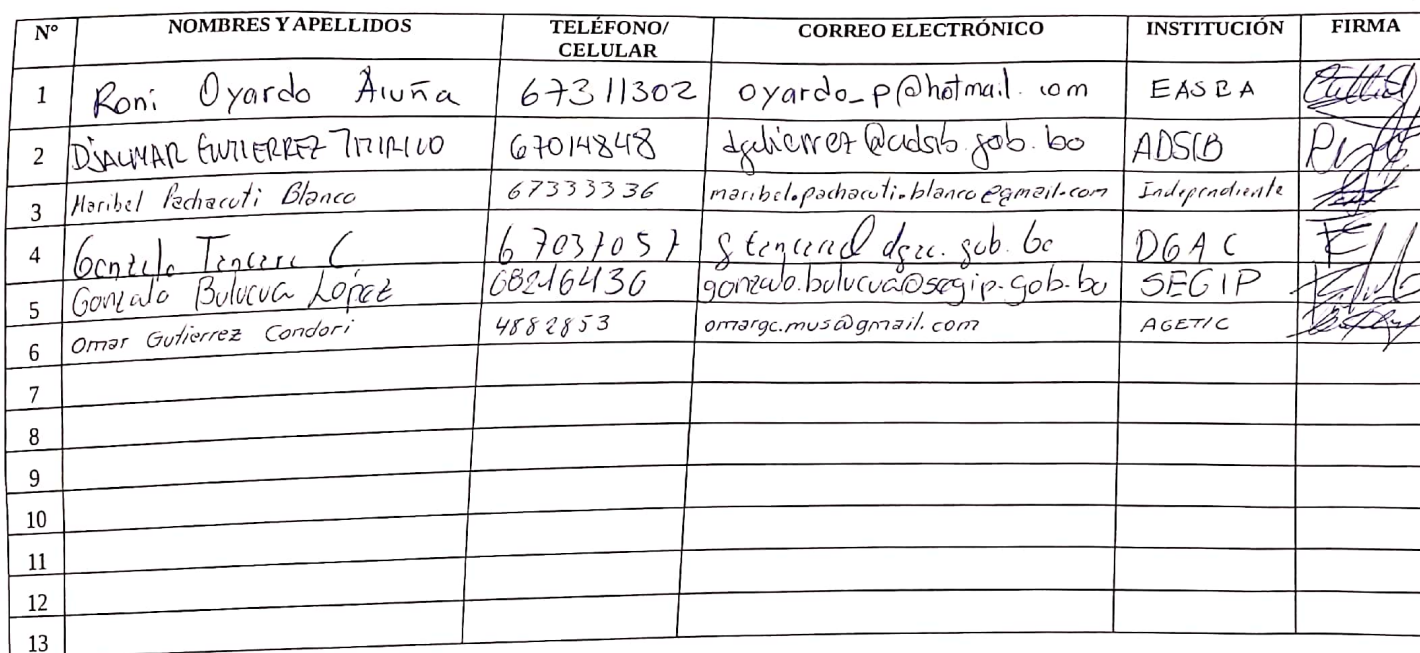 N° NOMBRES Y APELLIDOS TELÉFONO/ CELULAR CORREO ELECTRÓNICO INSTITUCIÓN FIRMA
1 Roni Oyardo Acuña 67311302 oyardo_p@hotmail.com EASBA
2 DJALMAR GUTIERREZ 67014848 ADSIB
3 Maribel Pachacuti Blanco 67333336 maribel.pachacuti.blanco@gmail.com Independiente
4 67037057 DGAC
5 Gonzalo Bulucua López 68216436 gonzalo.bulucua@segip.gob.bo SEGIP
6 Omar Gutierrez Condori 4882853 omargc.mus@gmail.com AGETIC
7
8
9
10
11
12
13